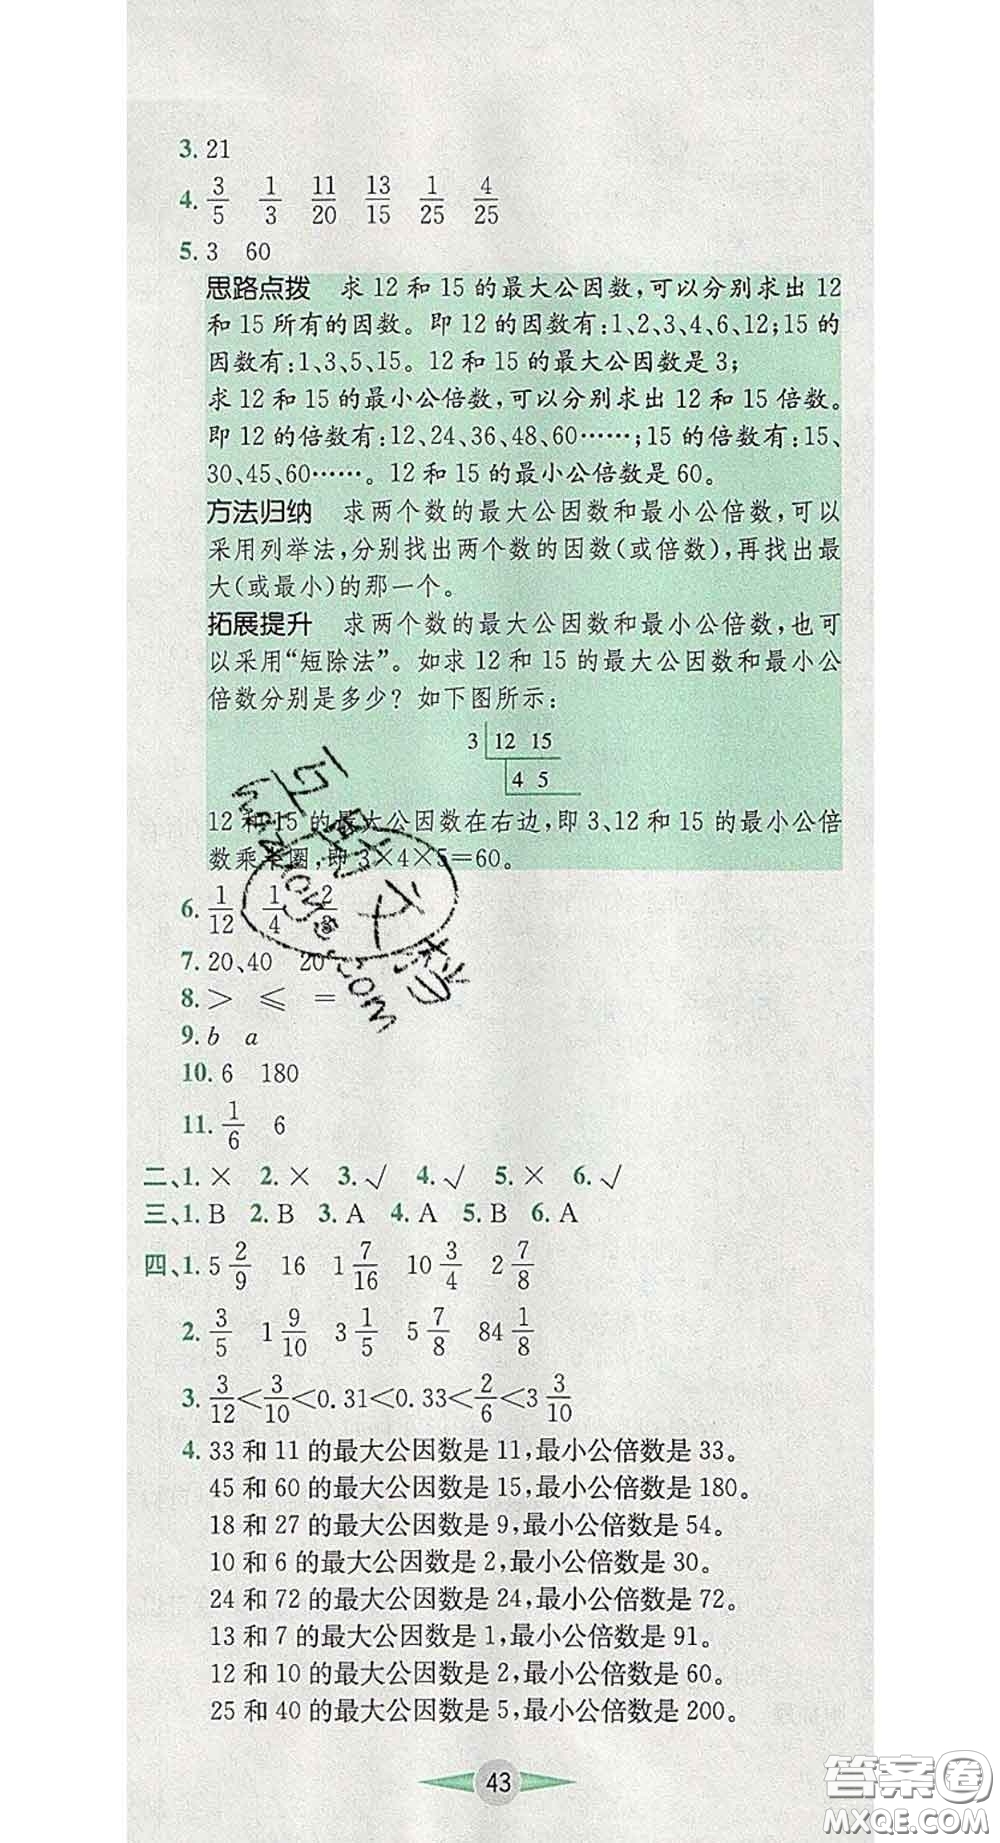 3. 21
4. 3/5 1/3 11/20 13/15 1/25 4/25
5. 3 60
思路点拨 求 12 和 15 的最大公因数,可以分别求出 12
和 15 所有的因数。即 12 的因数有:1、2、3、4、6、12;15 的
因数有:1、3、5、15。12 和 15 的最大公因数是 3;
求 12 和 15 的最小公倍数,可以分别求出 12 和 15 倍数。
即 12 的倍数有:12、24、36、48、60……;15 的倍数有:15、
30、45、60……。12 和 15 的最小公倍数是 60。
方法归纳 求两个数的最大公因数和最小公倍数,可以
采用列举法,分别找出两个数的因数(或倍数),再找出最
大(或最小)的那一个。
拓展提升 求两个数的最大公因数和最小公倍数,也可
以采用“短除法”。如求 12 和 15 的最大公因数和最小公
倍数分别是多少? 如下图所示:
3 12 15
4 5
12 和 15 的最大公因数在右边,即 3、12 和 15 的最小公倍
数乘半圈,即 3×4×5=60。
6. 1/12 1/4
7. 20、40 20
8. > ≤ =
9. b a
10. 6 180
11. 1/6 6
二、1. × 2. × 3. √ 4. √ 5. × 6. √
三、1. B 2. B 3. A 4. A 5. B 6. A
四、1. 5 2/9 16 1 7/16 10 3/4 2 7/8
2. 3/5 1 9/10 3 1/5 5 7/8 84 1/8
3. 3/12<3/10<0.31<0.33<2/6<3 3/10
4. 33 和 11 的最大公因数是 11,最小公倍数是 33。
45 和 60 的最大公因数是 15,最小公倍数是 180。
18 和 27 的最大公因数是 9,最小公倍数是 54。
10 和 6 的最大公因数是 2,最小公倍数是 30。
24 和 72 的最大公因数是 24,最小公倍数是 72。
13 和 7 的最大公因数是 1,最小公倍数是 91。
12 和 10 的最大公因数是 2,最小公倍数是 60。
25 和 40 的最大公因数是 5,最小公倍数是 200。
43
答案圈
MXQE.COM